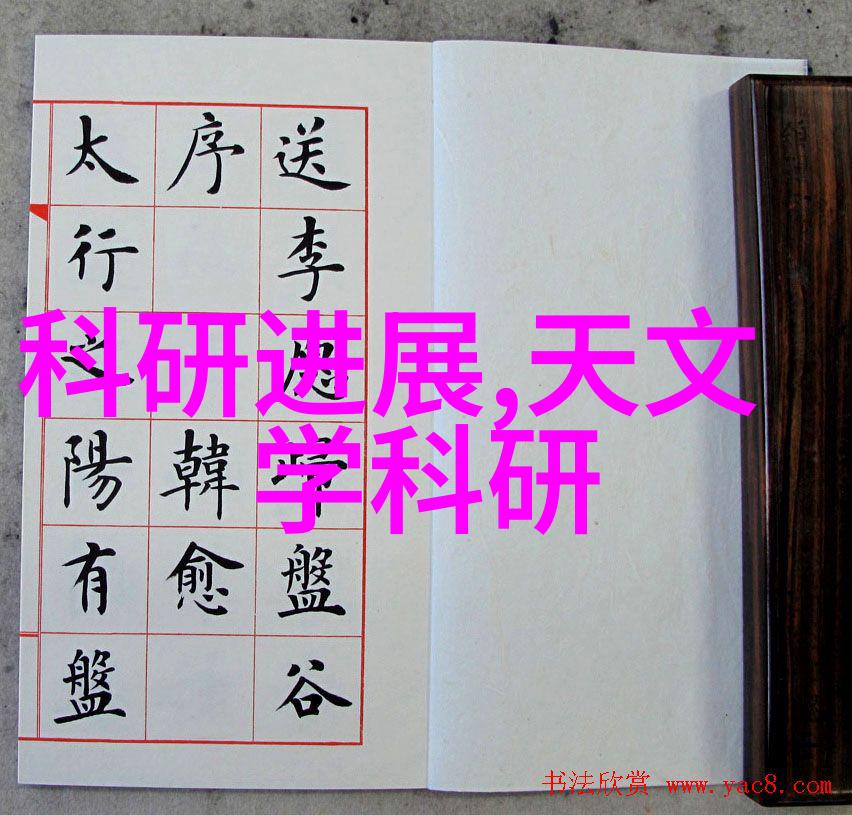 送李愿歸盤谷
序 韓愈
太行之陽有盤
科研进展,天文
学科研
书法欣赏 www.yac8.com